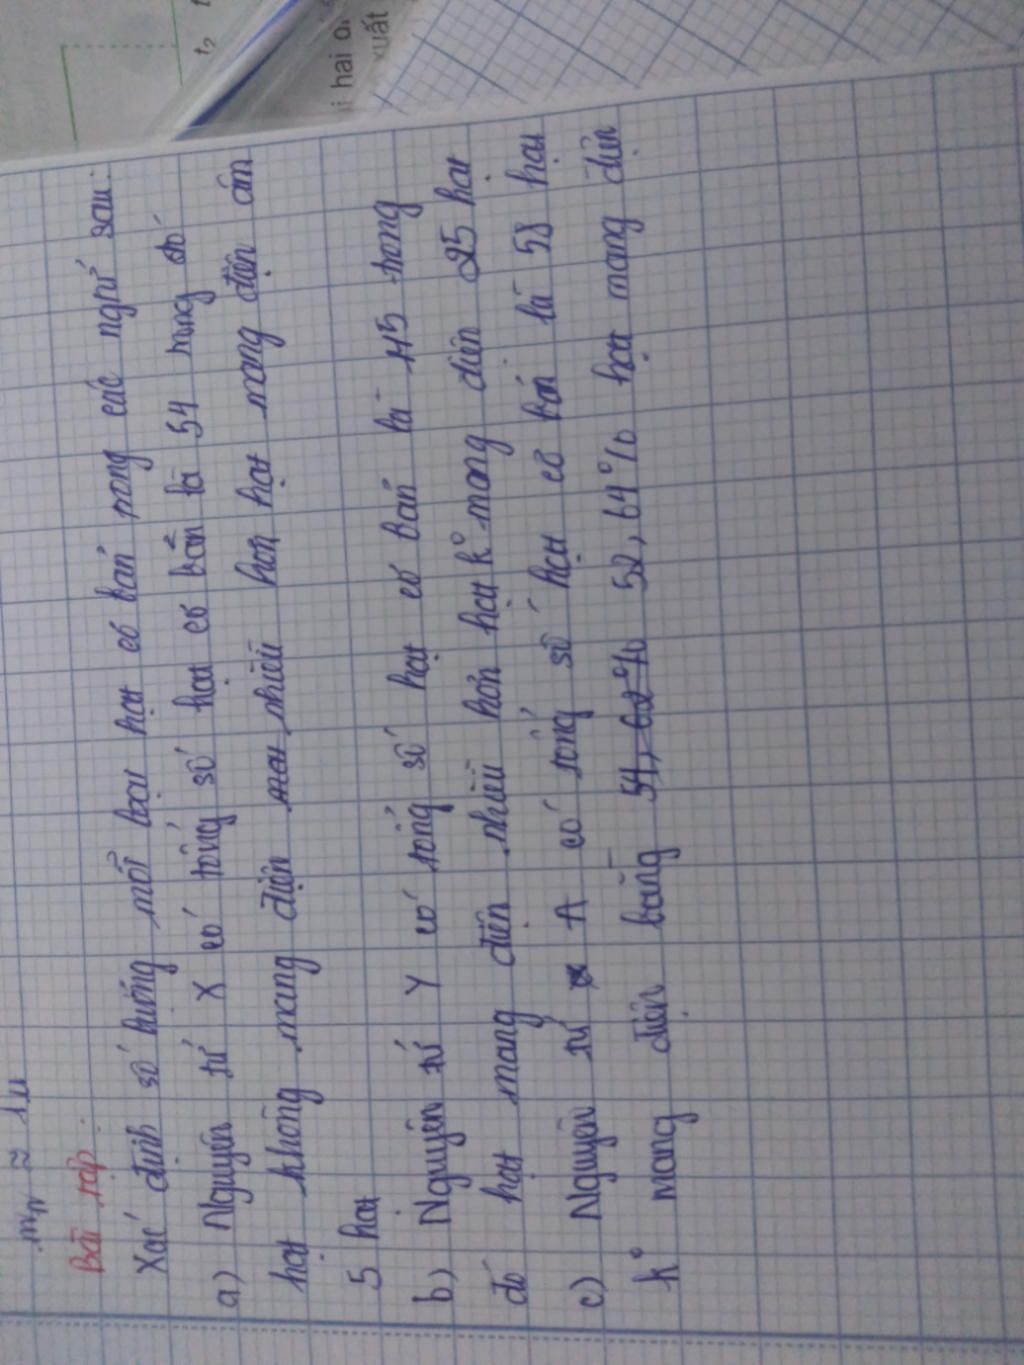 mₙ ≈ 1u
Bài tập:
Xác định số lượng mỗi loại hạt cơ bản trong các ngtử sau:
a) Nguyên tử X có tổng số hạt cơ bản là 54 trong đó
hạt không mang điện nhiều hơn hạt mang điện âm
5 hạt
b) Nguyên tử Y có tổng số hạt cơ bản là 115 trong
đó hạt mang điện nhiều hơn hạt k° mang điện 25 hạt
c) Nguyên tử A có tổng số hạt cơ bản là 58 hạt
k° mang điện bằng 52,64% hạt mang điện
t₂
i hai
xuất